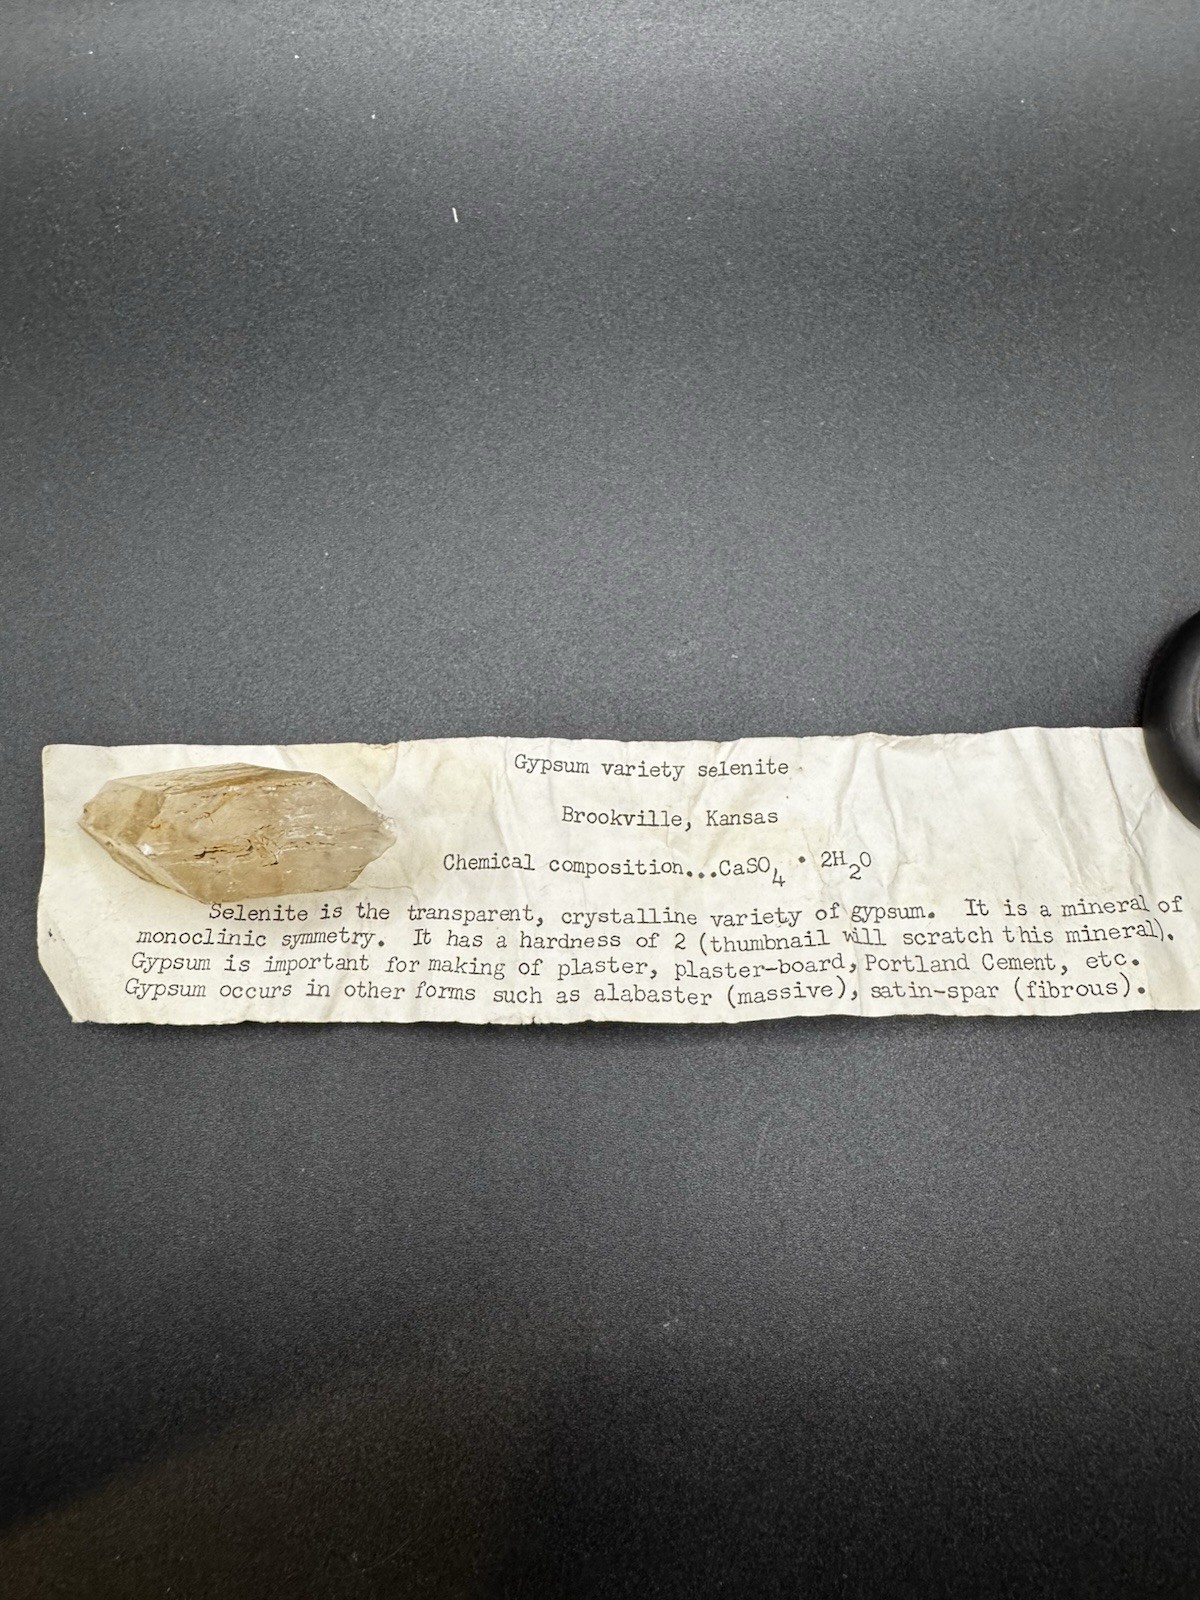 Gypsum variety selenite
Brookville, Kansas
Chemical composition...CaSO₄ · 2H₂O
Selenite is the transparent, crystalline variety of gypsum. It is a mineral of
monoclinic symmetry. It has a hardness of 2 (thumbnail will scratch this mineral).
Gypsum is important for making of plaster, plaster-board, Portland Cement, etc.
Gypsum occurs in other forms such as alabaster (massive), satin-spar (fibrous).